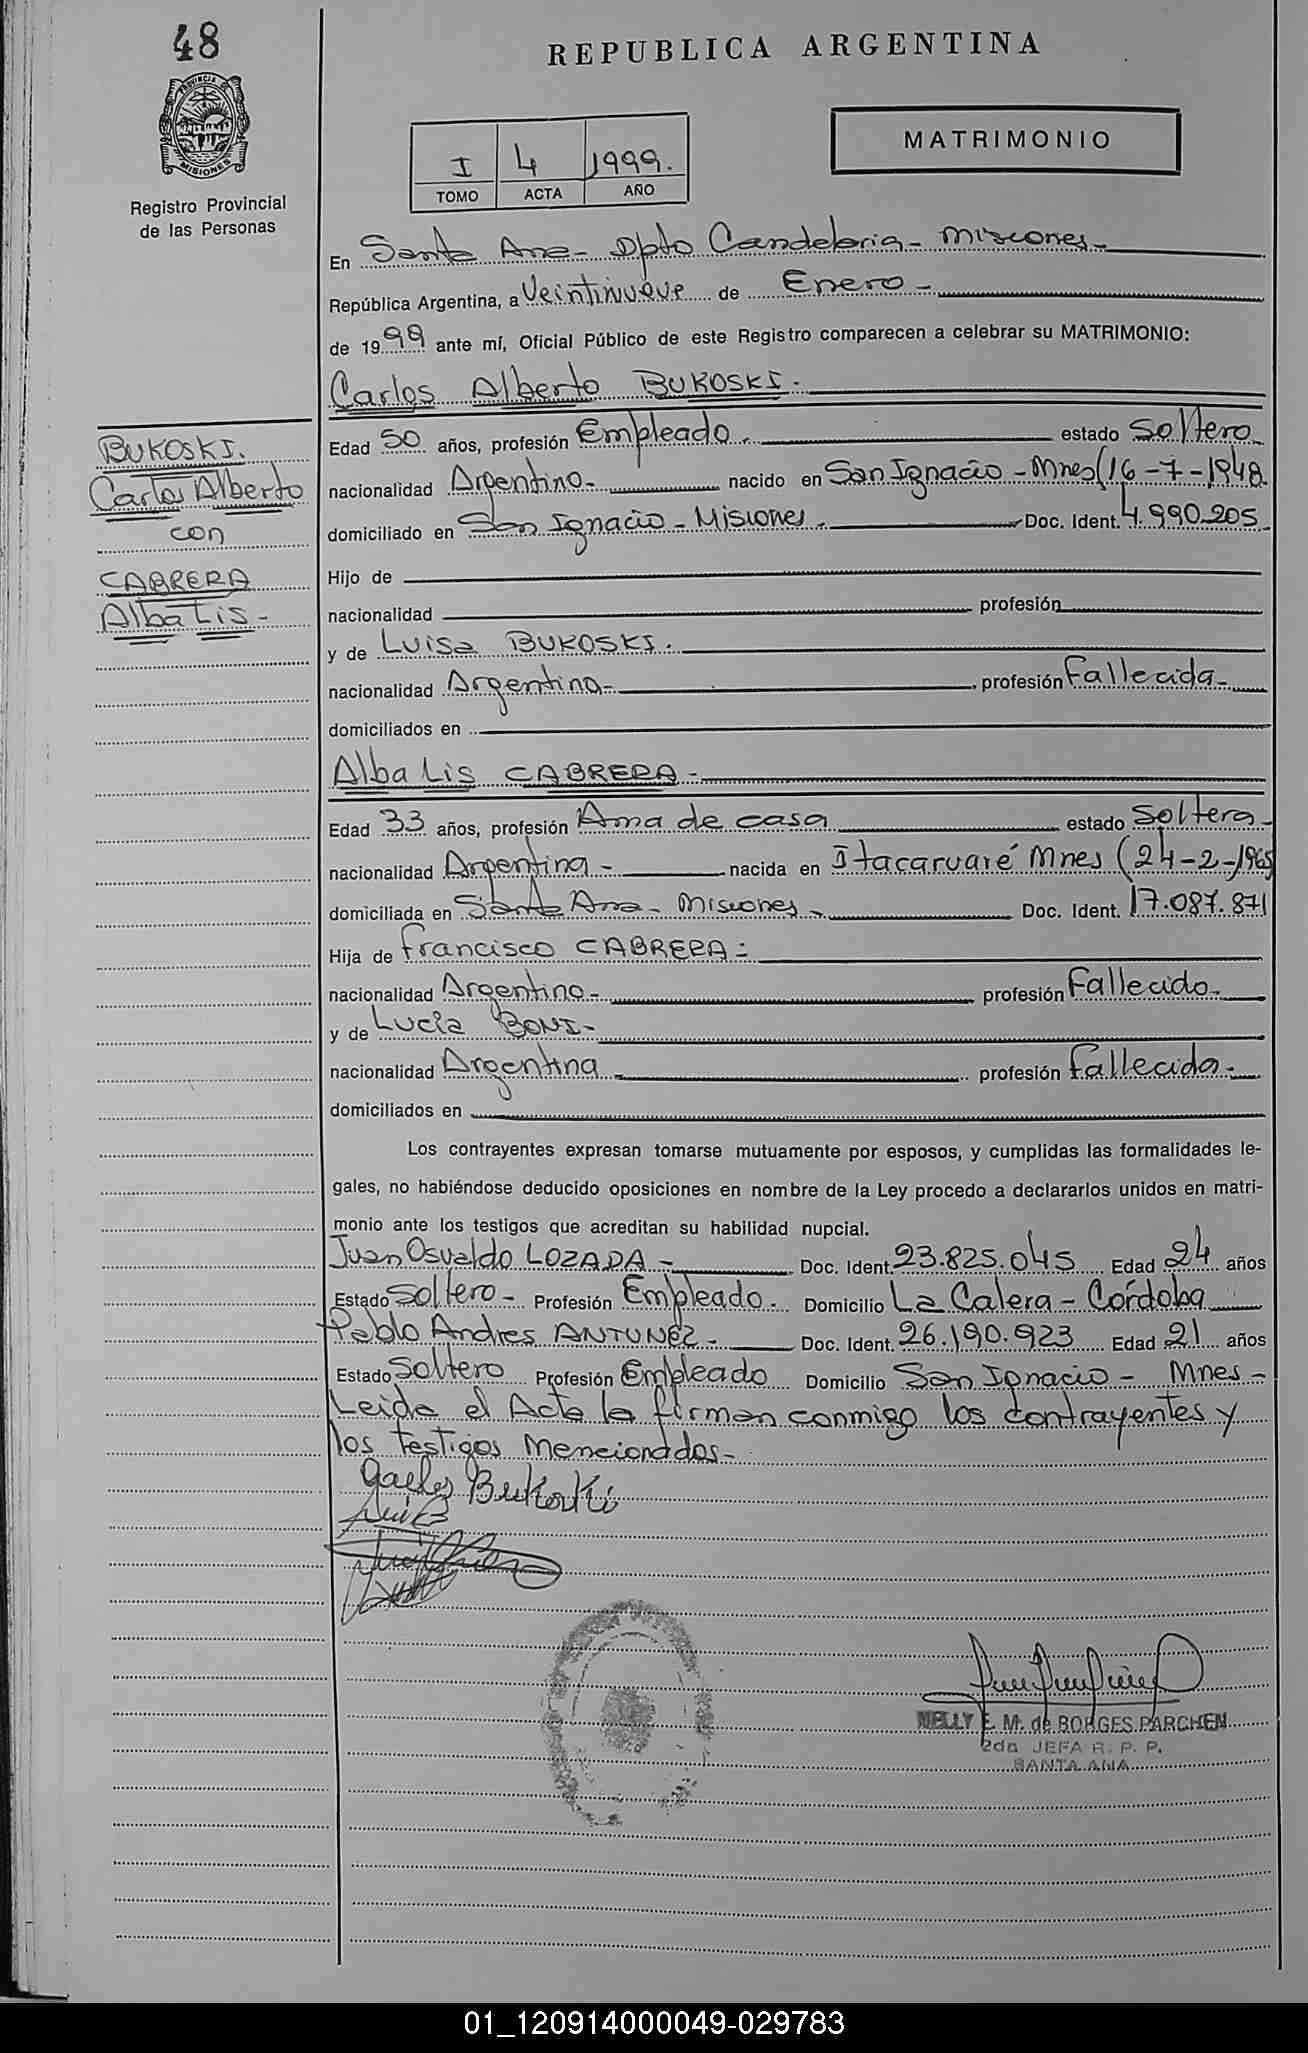 48
REPUBLICA ARGENTINA
PROVINCIA DE
MISIONES
Registro Provincial
de las Personas
MATRIMONIO
I 4 1999.
TOMO ACTA AÑO
En Santa Ana - Dpto Candelaria - Misiones -
República Argentina, a Veintinueve de Enero -
de 1999 ante mí, Oficial Público de este Registro comparecen a celebrar su MATRIMONIO:
Carlos Alberto BUKOSKI.
BUKOSKI.
Carlos Alberto
con
CABRERA
Alba Lis -
Edad 50 años, profesión Empleado. estado Soltero
nacionalidad Argentino - nacido en San Ignacio - Mnes (16-7-1948
domiciliado en San Ignacio - Misiones. Doc. Ident. 4.990.205
Hijo de
nacionalidad profesión
y de Luisa BUKOSKI.
nacionalidad Argentina - profesión Fallecida -
domiciliados en
Alba Lis CABRERA -
Edad 33 años, profesión Ama de casa estado Soltera -
nacionalidad Argentina - nacida en Itacaruaré Mnes (24-2-1965
domiciliada en Santa Ana - Misiones - Doc. Ident. 17.087.871
Hija de Francisco CABRERA =
nacionalidad Argentino - profesión Fallecido -
y de Lucía BONI -
nacionalidad Argentina profesión Fallecida -
domiciliados en
Los contrayentes expresan tomarse mutuamente por esposos, y cumplidas las formalidades le-
gales, no habiéndose deducido oposiciones en nombre de la Ley procedo a declararlos unidos en matri-
monio ante los testigos que acreditan su habilidad nupcial.
Juan Osvaldo LOZADA - Doc. Ident. 23.825.045 Edad 24 años
Estado Soltero - Profesión Empleado. Domicilio La Calera - Córdoba
Pablo Andres ANTUNEZ - Doc. Ident. 26.190.923 Edad 21 años
Estado Soltero Profesión Empleado Domicilio San Ignacio - Mnes -
Leida el Acta la firman conmigo los contrayentes y
los testigos mencionados -
Carlos Bukoski
NELLY E. M. de BORGES PARCHEN
2da JEFA R. P. P.
SANTA ANA
01_120914000049-029783